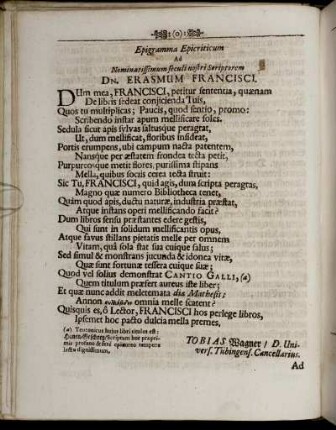 (0)
Epigramma Epicriticum
Ad
Nominatissimum seculi nostri Scriptorem
DN. ERASMUM FRANCISCI.
DUm mea, FRANCISCI, petitur sententia, quænam
De libris sedeat conjicienda Tuis,
Quos tu multiplices; Paucis, quod sentio, promo:
Scribendo instar apum mellificare soles.
Sedula sicut apis sylvas saltusque peragrat,
Ut, dum mellificat, floribus insideat,
Portis erumpens, ubi campum nacta patentem,
Nansque per æstatem frondea tecta petit,
Purpureosque metit flores, purissima stipans
Mella, quibus sociis cerea tecta struit:
Sic Tu, FRANCISCI, quid agis, dum scripta peragras,
Magno quæ numero Bibliotheca tenet,
Quàm quod apis, ductu naturæ, industria præstat,
Atque instans operi mellificando facit?
Dum libros sensu præstantes edere gestis,
Qui sunt in solidum mellificantis opus,
Atque favus stillans pietatis melle per omnem
Vitam, quâ sola stat sua cuique salus;
Sed simul & monstras jucunda & idonea vitæ,
Quæ sunt fortunæ tessera cuique suæ;
Quod vel solius demonstrat CANTIO GALLI, (a)
Quem titulum præfert aureus iste liber;
Et quæ nunc addit meletemata dia Mathesis:
Annon omnia melle scatent?
Quisquis es, ô Lector, FRANCISCI hos perlege libros,
Ipsemet hoc pacto dulcia mella premes.
(a) Teutonicus hujus libri titulus est:
Hanen-Geschrey/ Scriptum hoc propri-
mis profano & seni opinione tempora
lectu dignissimum.
TOBIAS Wagner / D. Uni-
vers. Tubingens. Cancellarius.
Ad